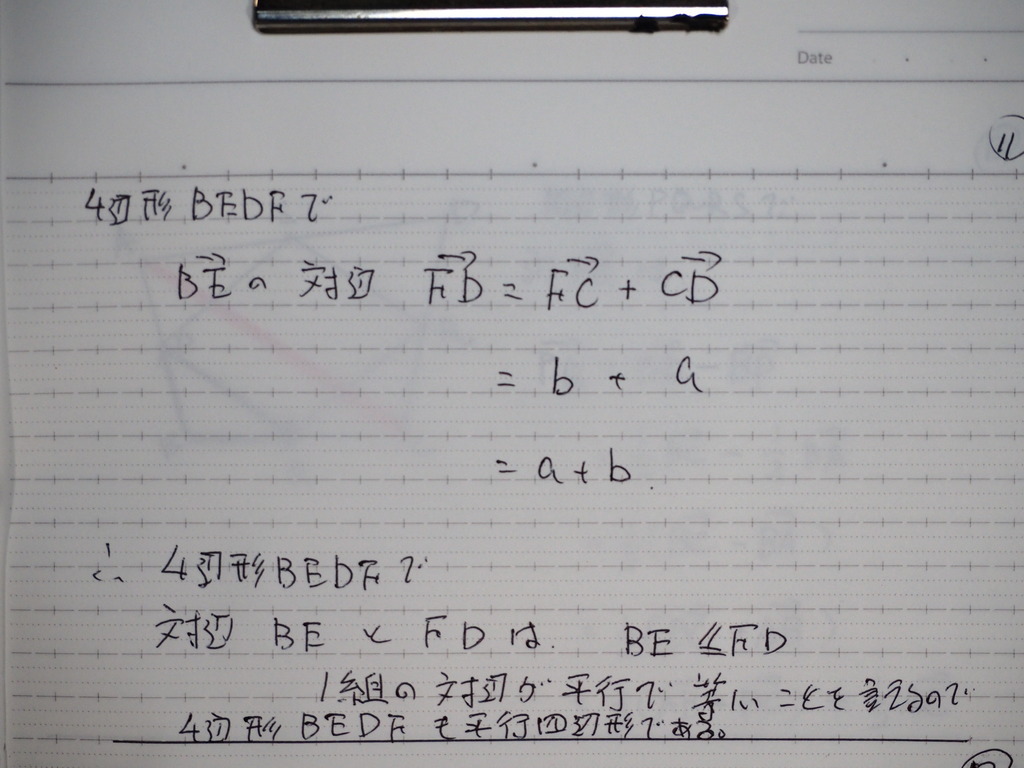 Date
11
4辺形 BEDF で
BE→の 対辺 FD→ = FC→ + CD→
= b + a
= a + b.
∴ 4辺形BEDFで
対辺 BE と FD は. BE ⫽ FD
1組の 対辺が 平行で 等しい ことを 言えるので
4辺形 BEDF も平行四辺形である。